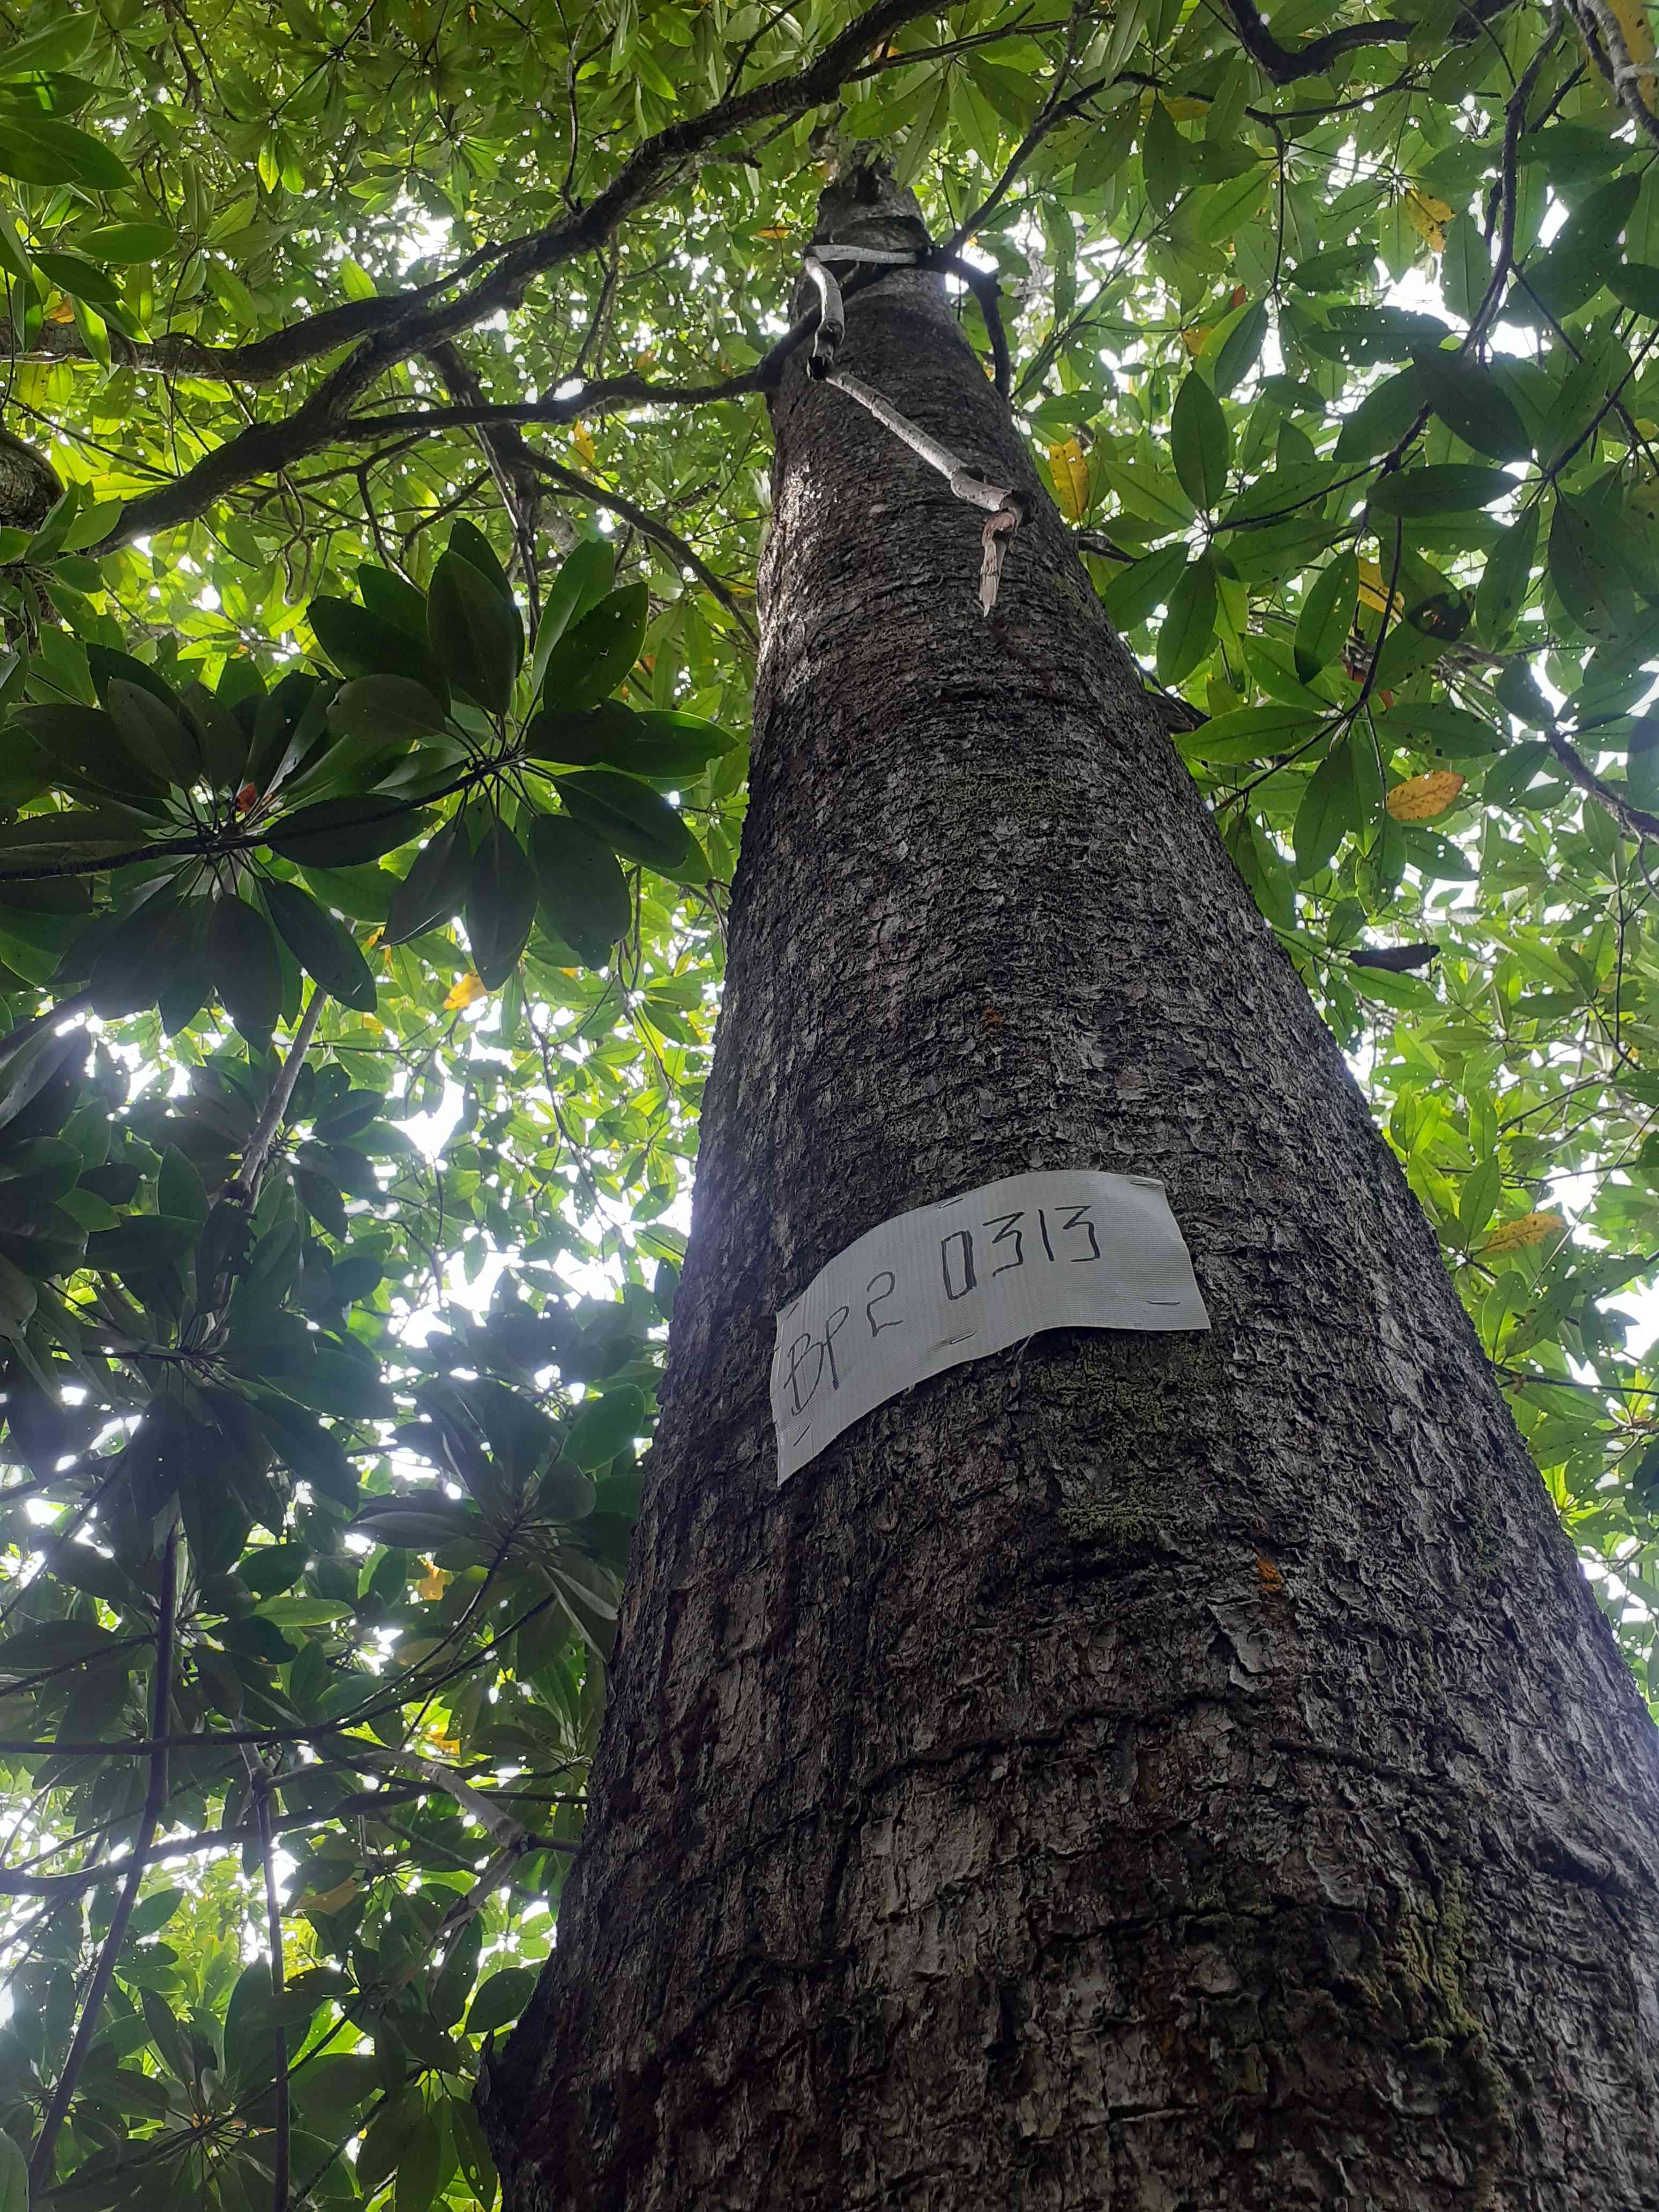 BP2 0313